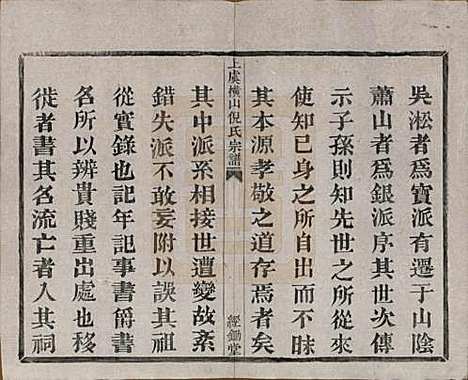 吳淞者爲寶派有遷于山陰
蕭山者爲銀派序其世次傳
示子孫則知先世之所從來
使知已身之所自出而不昧
其本源孝敬之道存焉者矣
上虞横山倪氏宗譜
經鋤堂
其中派系相接世遭變故紊
錯失派不敢妄附以誤其祖
從實錄也記年記事書爵書
名所以辨貴賤重出處也移
徙者書其名流亡者入其祠